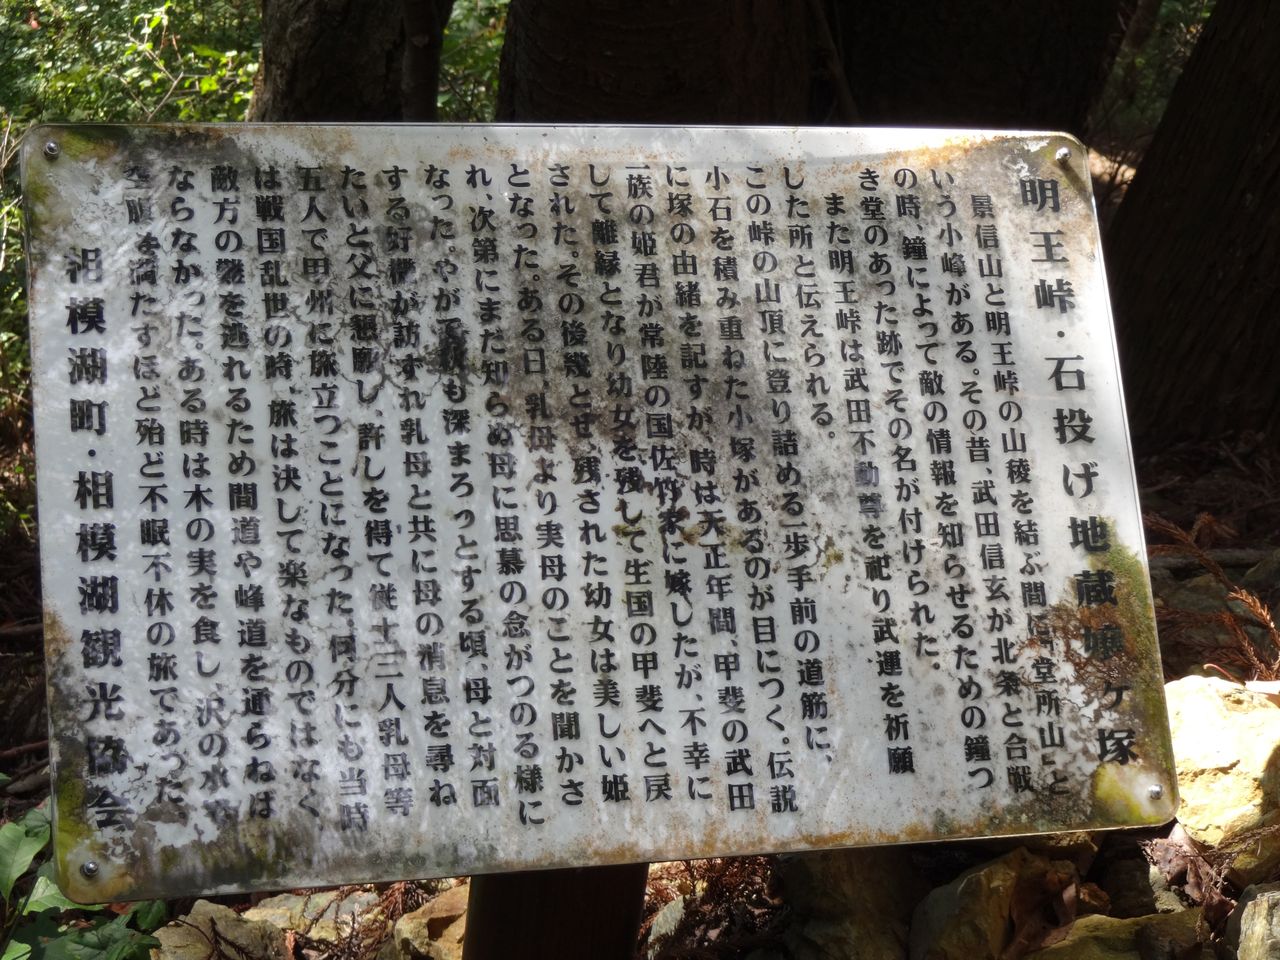 明王峠・石投げ地蔵嬢ケ塚
景信山と明王峠の山稜を結ぶ間に「堂所山」と
いう小峰がある。その昔、武田信玄が北条と合戦
の時、鐘によって敵の情報を知らせるための鐘つ
き堂のあった跡でその名が付けられた。
また明王峠は武田不動尊を祀り武運を祈願
した所と伝えられる。
この峠の山頂に登り詰める一歩手前の道筋に、
小石を積み重ねた小塚があるのが目につく。伝説
に塚の由緒を記すが、時は天正年間、甲斐の武田
一族の姫君が常陸の国佐竹家に嫁したが、不幸に
して離縁となり幼女を残して生国の甲斐へと戻
された。その後幾とせ、残された幼女は美しい姫
となった。ある日、乳母より実母のことを聞かさ
れ、次第にまだ知らぬ母に思慕の念がつのる様に
なった。やがて秋も深まろっとする頃、母と対面
する好機が訪ずれ乳母と共に母の消息を尋ね
たいと父に懇願し、許しを得て従士三人乳母等
五人で甲州に旅立つことになった。何分にも当時
は戦国乱世の時、旅は決して楽なものではなく、
敵方の難を逃れるため間道や峰道を通らねば
ならなかった。ある時は木の実を食し、沢の水で
空腹を満たすほど殆ど不眠不休の旅であった。
相模湖町・相模湖観光協会